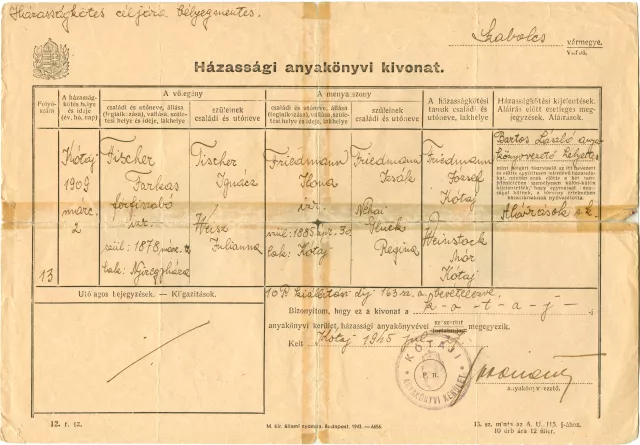 Házasságkötés céljára bélyegmentes.
Szabolcs vármegye.
Házassági anyakönyvi kivonat.
Folyószám
A házasságkötés helye és ideje (év, hó, nap)
A vőlegény
családi és utóneve, állása (foglalkozása), vallása, születési helye és ideje, lakhelye
szüleinek családi és utóneve
A menyasszony
családi és utóneve, állása (foglalkozása), vallása, születési helye és ideje, lakhelye
szüleinek családi és utóneve
A házasságkötési tanuk családi és utóneve, lakhelye
Házasságkötési kijelentések. Aláírás előtt esetleges megjegyzések. Aláírások.
13
Kótaj
1909
márc.
2
Fischer
Farkas
férfiszabó
izr.
szül: 1878. márc.
lak: Nyiregyháza
Fischer
Ignácz
Weisz
Julianna
Friedmann
Ilona
izr.
szül: 1885 apr. 30
lak: Kótaj
Friedmann
Izsák
Néhai
Glück
Regina
Friedmann
József
Kótaj
Weinstock
Mór
Kótaj
Bartos László anya
könyvvezető helyettes
Aláírások s.k.
Utólagos bejegyzések. — Kiigazítások.
10 P kiállítási díj 163 sz. a. bevételezve.
Bizonyítom, hogy ez a kivonat a K-ó-t-a-j-i
anyakönyvi kerület, házassági anyakönyvével megegyezik.
Kelt Kótaj 1945
KÓTAJI
P. H.
ANYAKÖNYVI KERÜLET
anyakönyvvezető.
12. r. sz.
M. kir. állami nyomda. Budapest, 1943.
13. sz. minta az A. U. 115. §-ához.
10 drb ára 12 fillér.